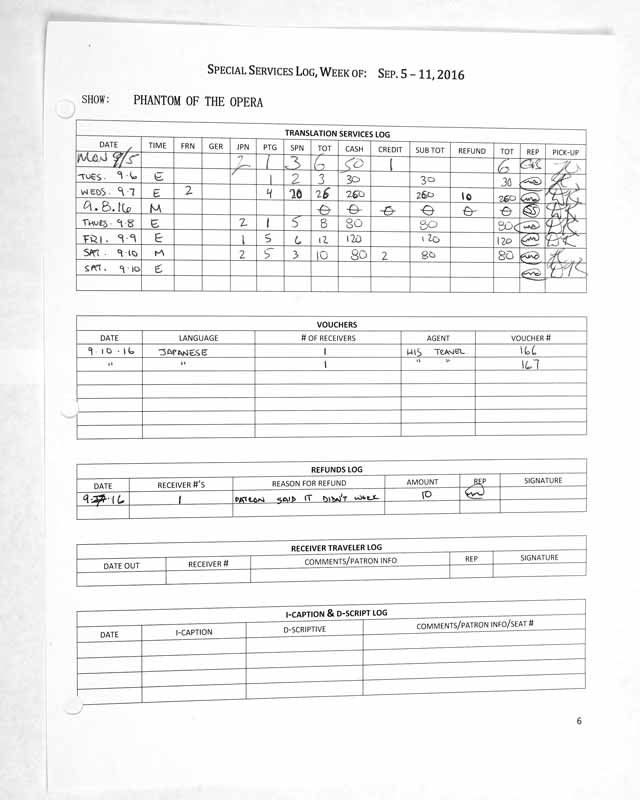 SPECIAL SERVICES LOG, WEEK OF: SEP. 5 – 11, 2016
SHOW: PHANTOM OF THE OPERA
TRANSLATION SERVICES LOG
DATE TIME FRN GER JPN PTG SPN TOT CASH CREDIT SUB TOT REFUND TOT REP PICK-UP
MON 9/5 2 1 3 6 50 1 6
TUES. 9.6 E 1 2 3 30 30 30
WEDS. 9.7 E 2 4 20 26 260 260 10 260
9.8.16 M 0 0 0 0 0 0
THURS. 9.8 E 2 1 5 8 80 80 80
FRI. 9.9 E 1 5 6 12 120 120 120
SAT. 9.10 M 2 5 3 10 80 2 80 80
SAT. 9.10 E
VOUCHERS
DATE LANGUAGE # OF RECEIVERS AGENT VOUCHER #
9.10.16 JAPANESE 1 HIS TRAVEL 166
" " 1 " " 167
REFUNDS LOG
DATE RECEIVER #'S REASON FOR REFUND AMOUNT REP SIGNATURE
1 PATRON SAID IT DIDN'T WORK 10
RECEIVER TRAVELER LOG
DATE OUT RECEIVER # COMMENTS/PATRON INFO REP SIGNATURE
I-CAPTION & D-SCRIPT LOG
DATE I-CAPTION D-SCRIPTIVE COMMENTS/PATRON INFO/SEAT #
6